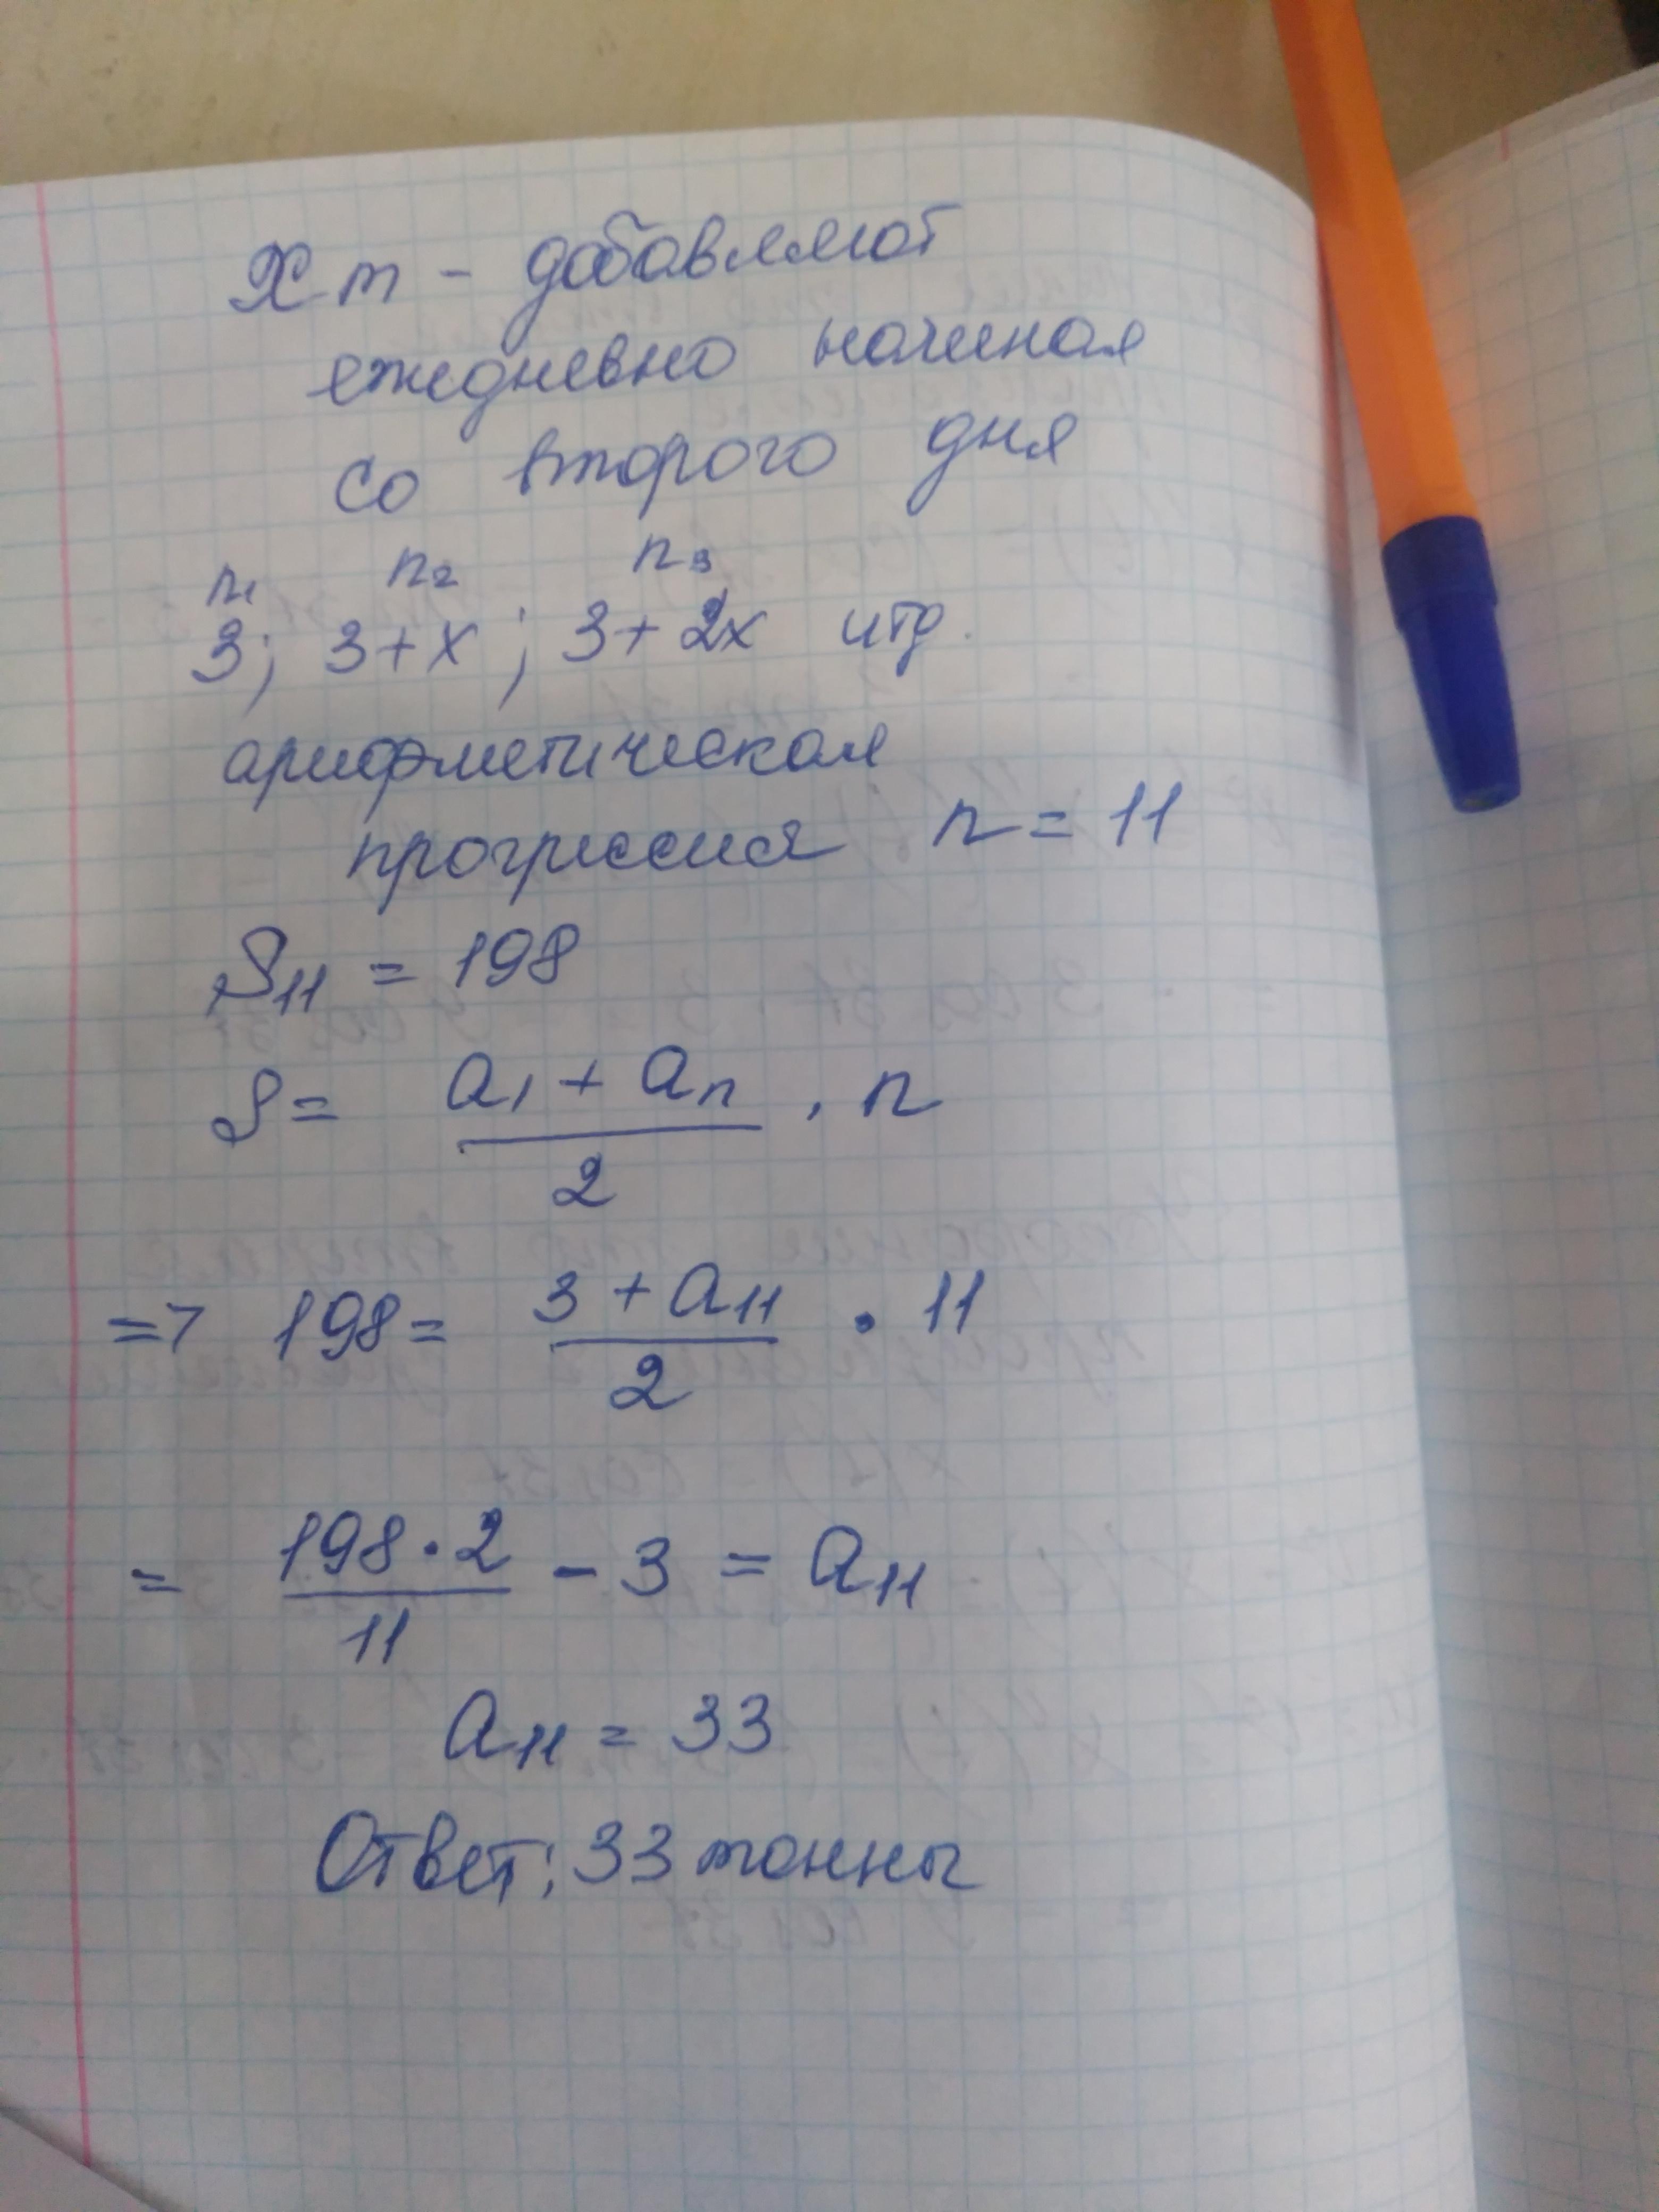 X т - добавляют
ежедневно начиная
со второго дня
n₁ n₂ n₃
3; 3+x; 3+2x итд.
арифметическая
прогрессия n = 11
S₁₁ = 198
S = (a₁ + aₙ)/2 · n
=> 198 = (3 + a₁₁)/2 · 11
= (198 · 2)/11 - 3 = a₁₁
a₁₁ = 33
Ответ: 33 тонны